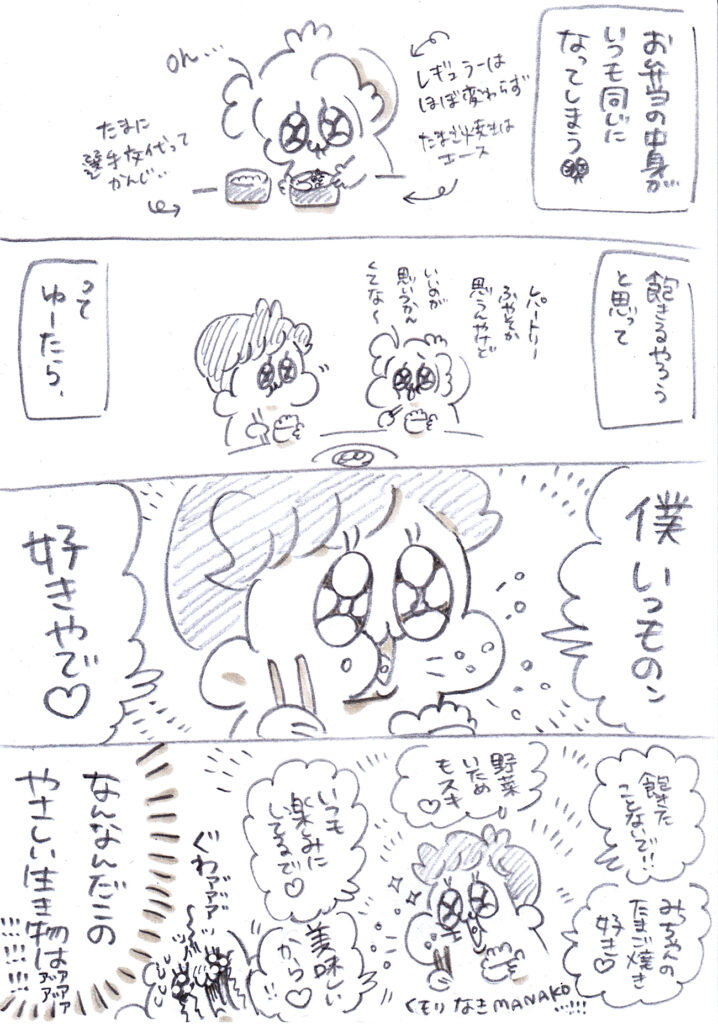 お弁当の中身が
いつも同じに
なってしまう
レギュラーは
ほぼ変わらず
たまご焼きは
エース
oh...
たまに
選手交代って
かんじ..
飽きるやろう
と思って
レパートリー
ふやそか
思うんやけど
いいのが
思いうかん
くてな〜
って
ゆーたら、
僕いつものン
好きやで♡
飽きた
ことないで!!
みちゃんの
たまご焼き
好き♡
野菜
いため
もスキ
♡
いつも
楽しみに
してるで♡
美味しい
から♡
くもりなきMANAKO
!!!!!
ぐわァァァァ
なんなんだこの
やさしい生き物はァァァァァ
!!!!!!!!